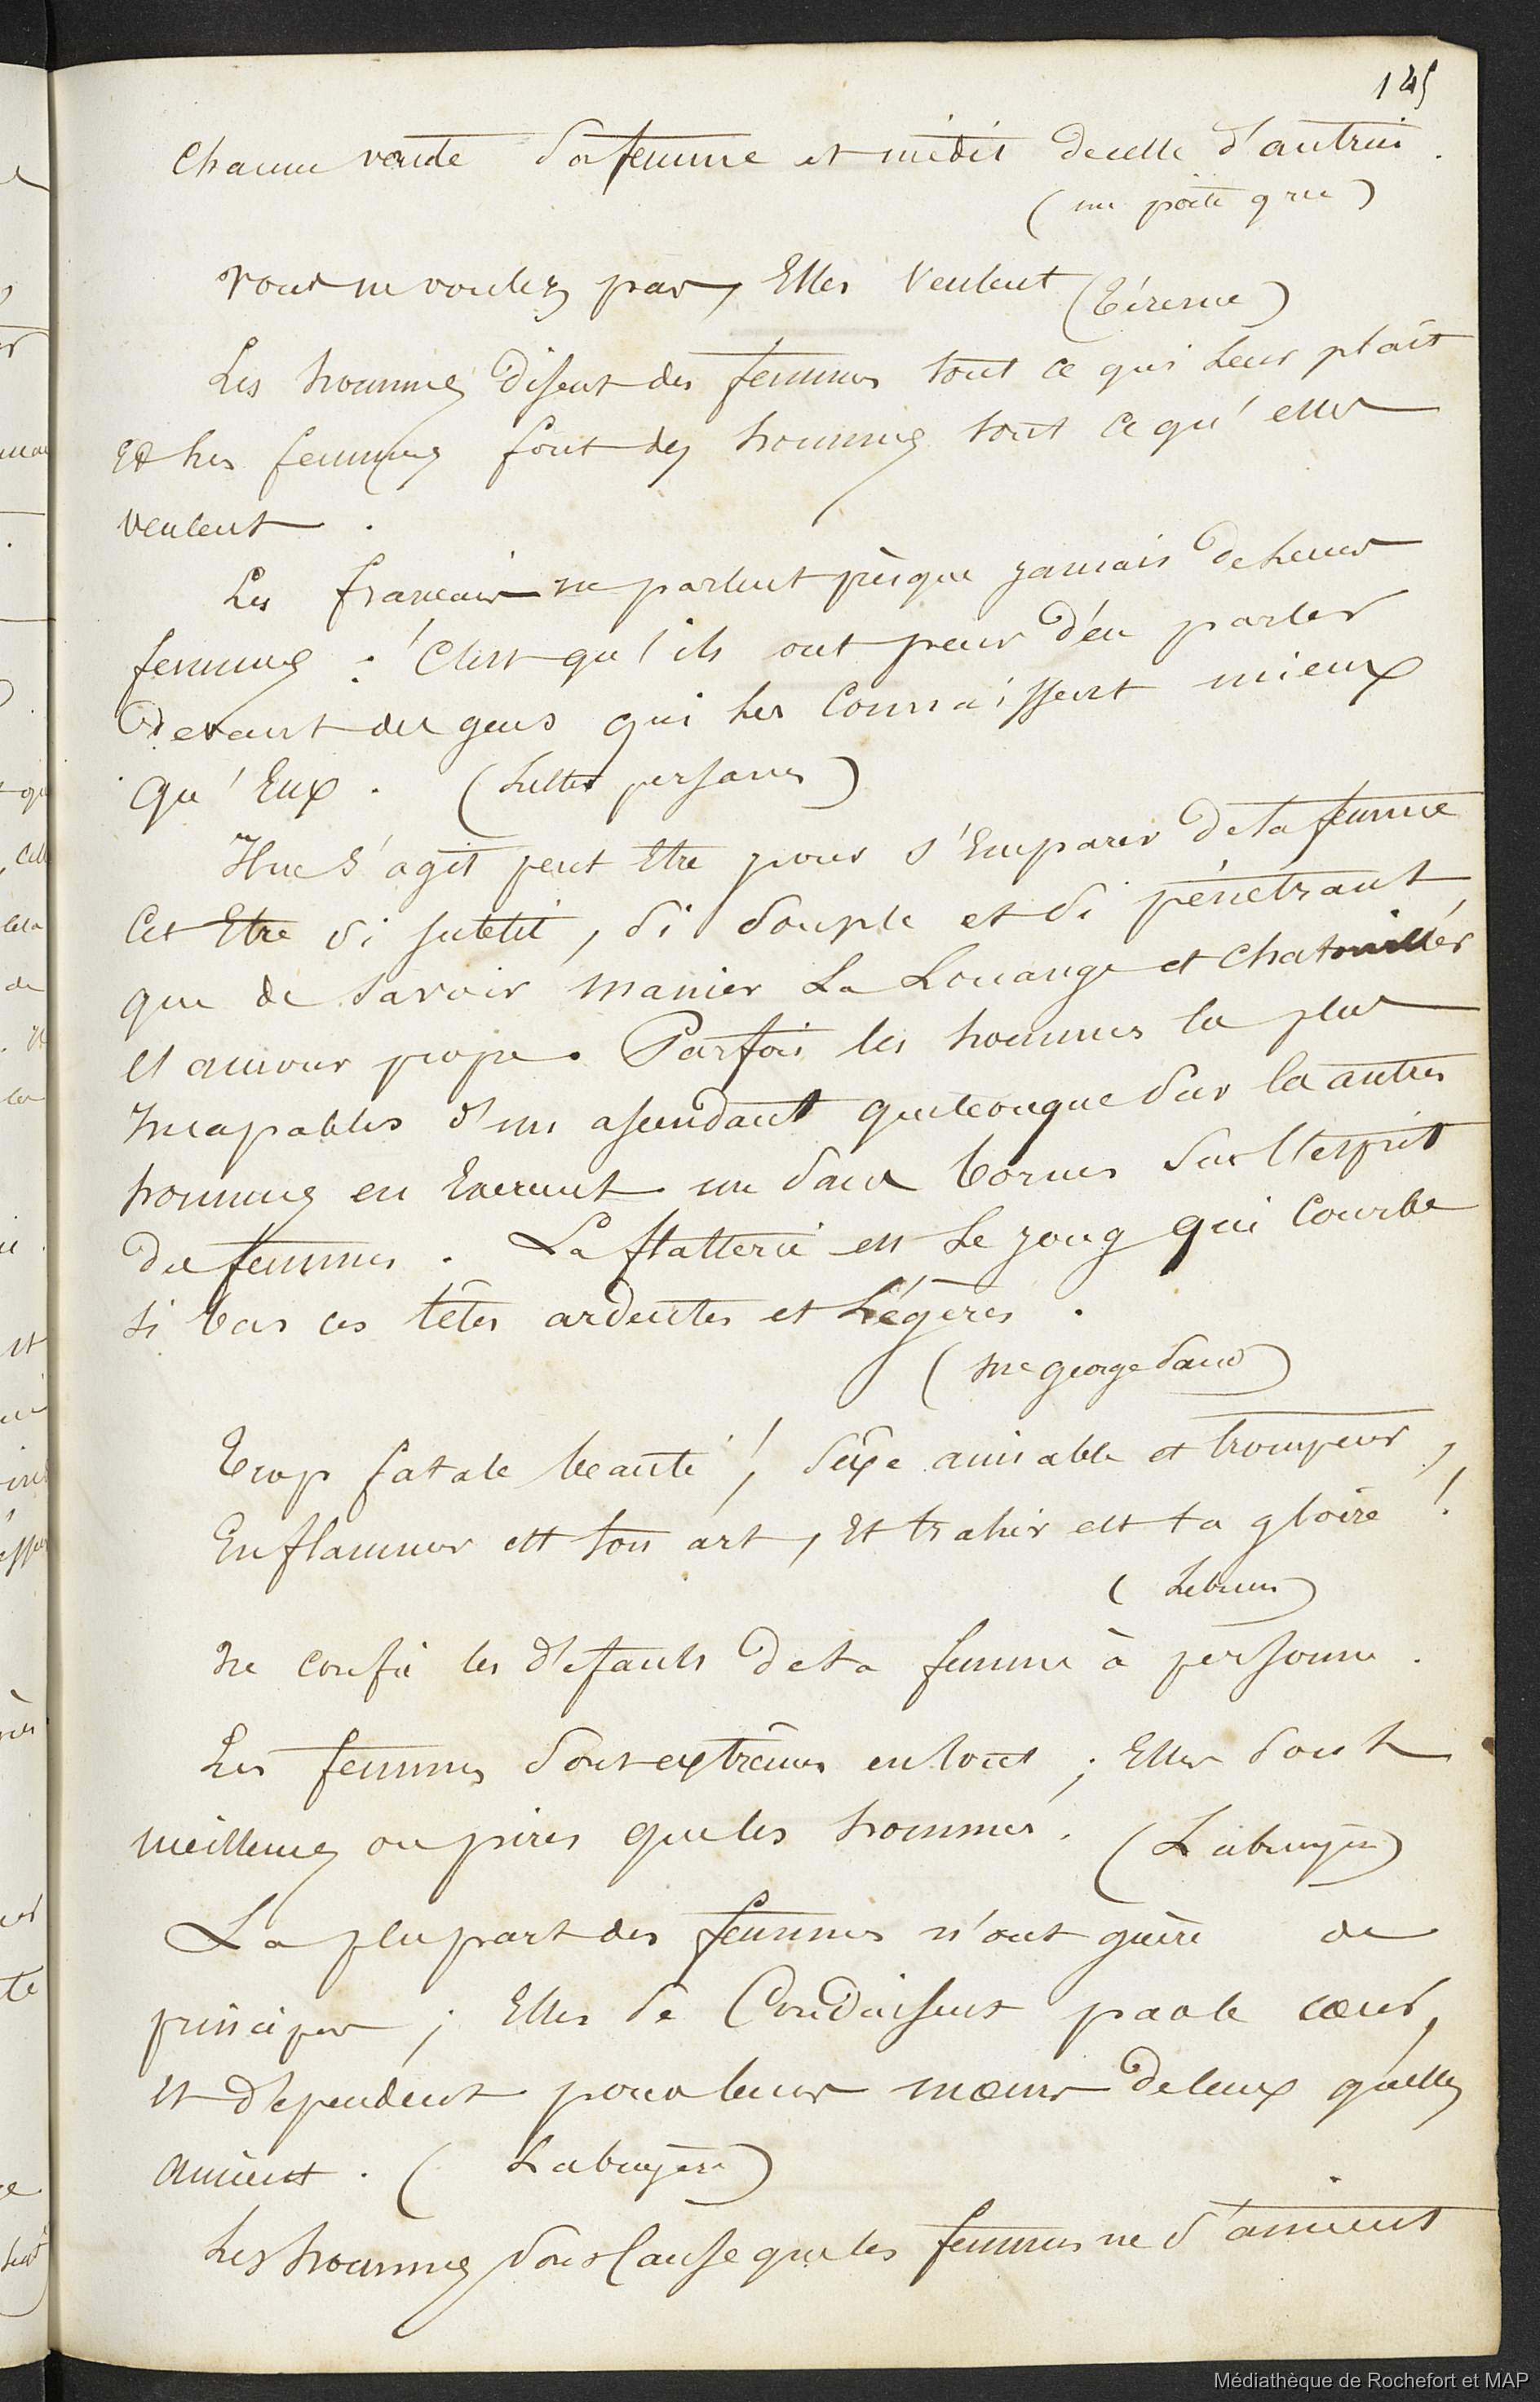 145
Chacun vante sa femme et médit de celle d'autrui.
(un poëte grec)
Vous ne voulez pas, Elles veulent (Térence)
Les hommes disent des femmes tout ce qui leur plaît
Et les femmes font des hommes tout ce qu'elles
veulent.
Les francais ne parlent prèsque jamais de leurs
femmes : C'est qu'ils ont peur d'en parler
devant des gens qui les connaissent mieux
qu'Eux. (Lettres persanes)
Il ne s'agit peut Etre pour s'Emparer de la femme
Cet Etre si subtil, si souple et si pénétrant
que de savoir manier La Louange et chatouiller
l'amour propre. Parfois les hommes les plus
Incapables d'un ascendant quelconque sur les autres
hommes en Exercent un sans bornes sur l'esprit
des femmes. La flatterie est le joug qui courbe
si bas ces têtes ardentes et légères.
(Me george Sand)
Trop fatale beauté ! Sexe aimable et trompeur,
Enflammer est ton art, Et trahir est ta gloire !
(Lebrun)
Ne confie les défauts de ta femme à personne.
Les femmes sont extrêmes en tout ; Elles sont
meilleures ou pires que les hommes. (Labruyère)
La plupart des femmes n'ont guère de
principes ; Elles se Conduisent par le cœur,
et dépendent pour leurs mœurs de ceux qu'elles
aiment. (Labruyère)
Les hommes sont Cause que les femmes ne s'aiment
Médiathèque de Rochefort et MAP